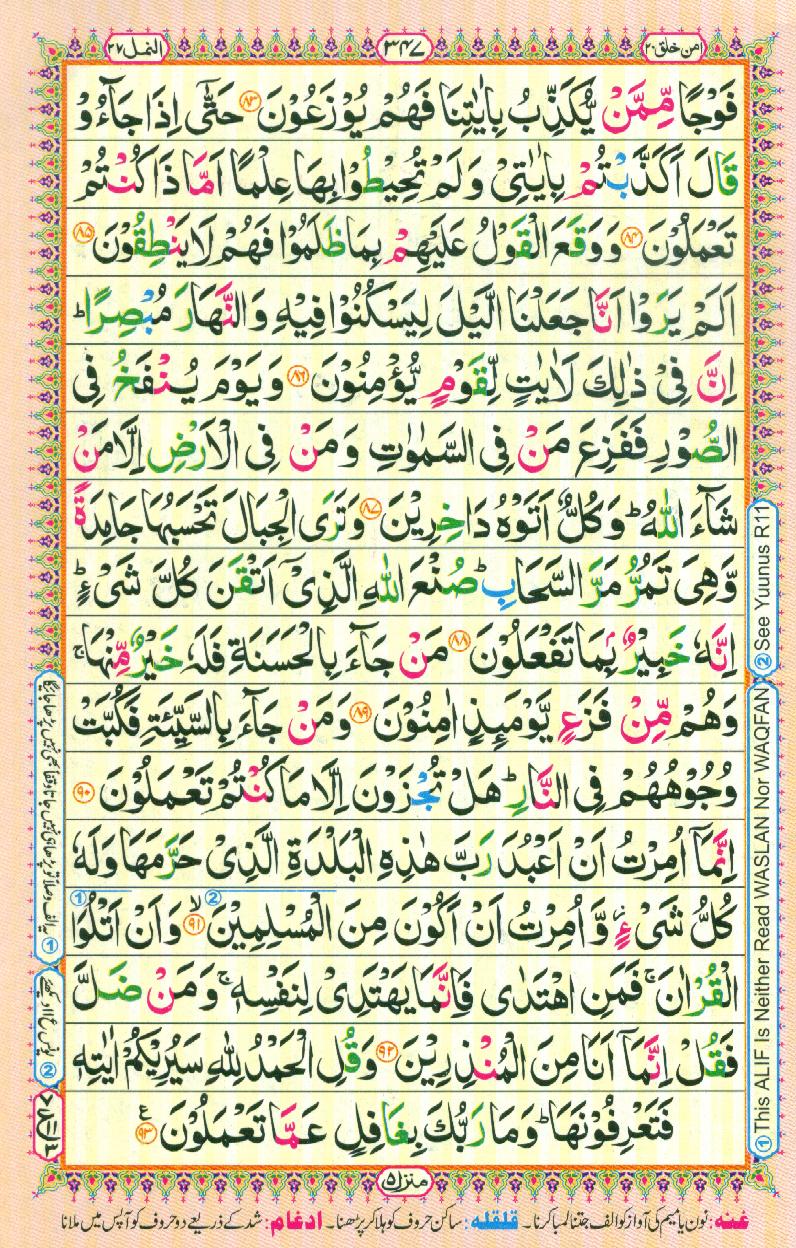 امن خلق ٢٠
٣٤٧
النمل ٢٧
فَوْجًا مِّمَّنْ يُّكَذِّبُ بِاٰيٰتِنَا فَهُمْ يُوْزَعُوْنَ ﴿٨٣﴾ حَتّٰٓى اِذَا جَآءُوْ
قَالَ اَكَذَّبْتُمْ بِاٰيٰتِىْ وَلَمْ تُحِيْطُوْا بِهَا عِلْمًا اَمَّا ذَا كُنْتُمْ
تَعْمَلُوْنَ ﴿٨٤﴾ وَوَقَعَ الْقَوْلُ عَلَيْهِمْ بِمَا ظَلَمُوْا فَهُمْ لَا يَنْطِقُوْنَ ﴿٨٥﴾
اَلَمْ يَرَوْا اَنَّا جَعَلْنَا الَّيْلَ لِيَسْكُنُوْا فِيْهِ وَالنَّهَارَ مُبْصِرًا ؕ
اِنَّ فِىْ ذٰلِكَ لَاٰيٰتٍ لِّقَوْمٍ يُّؤْمِنُوْنَ ﴿٨٦﴾ وَيَوْمَ يُنْفَخُ فِى
الصُّوْرِ فَفَزِعَ مَنْ فِى السَّمٰوٰتِ وَمَنْ فِى الْاَرْضِ اِلَّا مَنْ
شَآءَ اللّٰهُ ؕ وَكُلٌّ اَتَوْهُ دَاخِرِيْنَ ﴿٨٧﴾ وَتَرَى الْجِبَالَ تَحْسَبُهَا جَامِدَةً
وَّهِىَ تَمُرُّ مَرَّ السَّحَابِ ؕ صُنْعَ اللّٰهِ الَّذِىْۤ اَتْقَنَ كُلَّ شَىْءٍ ؕ
اِنَّهٗ خَبِيْرٌۢ بِمَا تَفْعَلُوْنَ ﴿٨٨﴾ مَنْ جَآءَ بِالْحَسَنَةِ فَلَهٗ خَيْرٌ مِّنْهَا ۚ
وَهُمْ مِّنْ فَزَعٍ يَّوْمَئِذٍ اٰمِنُوْنَ ﴿٨٩﴾ وَمَنْ جَآءَ بِالسَّيِّئَةِ فَكُبَّتْ
وُجُوْهُهُمْ فِى النَّارِ ؕ هَلْ تُجْزَوْنَ اِلَّا مَا كُنْتُمْ تَعْمَلُوْنَ ﴿٩٠﴾
اِنَّمَاۤ اُمِرْتُ اَنْ اَعْبُدَ رَبَّ هٰذِهِ الْبَلْدَةِ الَّذِىْ حَرَّمَهَا وَلَهٗ
كُلُّ شَىْءٍ ؗ وَّاُمِرْتُ اَنْ اَكُوْنَ مِنَ الْمُسْلِمِيْنَ ۙ﴿٩١﴾ وَاَنْ اَتْلُوَا
الْقُرْاٰنَ ۚ فَمَنِ اهْتَدٰى فَاِنَّمَا يَهْتَدِىْ لِنَفْسِهٖ ۚ وَمَنْ ضَلَّ
فَقُلْ اِنَّمَاۤ اَنَا مِنَ الْمُنْذِرِيْنَ ﴿٩٢﴾ وَقُلِ الْحَمْدُ لِلّٰهِ سَيُرِيْكُمْ اٰيٰتِهٖ
فَتَعْرِفُوْنَهَا ؕ وَمَا رَبُّكَ بِغَافِلٍ عَمَّا تَعْمَلُوْنَ ﴿٩٣﴾ ع
① This ALIF Is Neither Read WASLAN Nor WAQFAN
② See Yuunus R11
① یہ الف وصلاً تو پڑھا ہی نہیں جاتا وقفاً بھی نہیں پڑھا جائیگا
منزل ٥
غنه: نون یا میم کی آواز کو الف جتنا لمبا کرنا۔ قلقله: ساکن حروف کو ہلا کر پڑھنا۔ ادغام: شد کے ذریعے دو حروف کو آپس میں ملانا